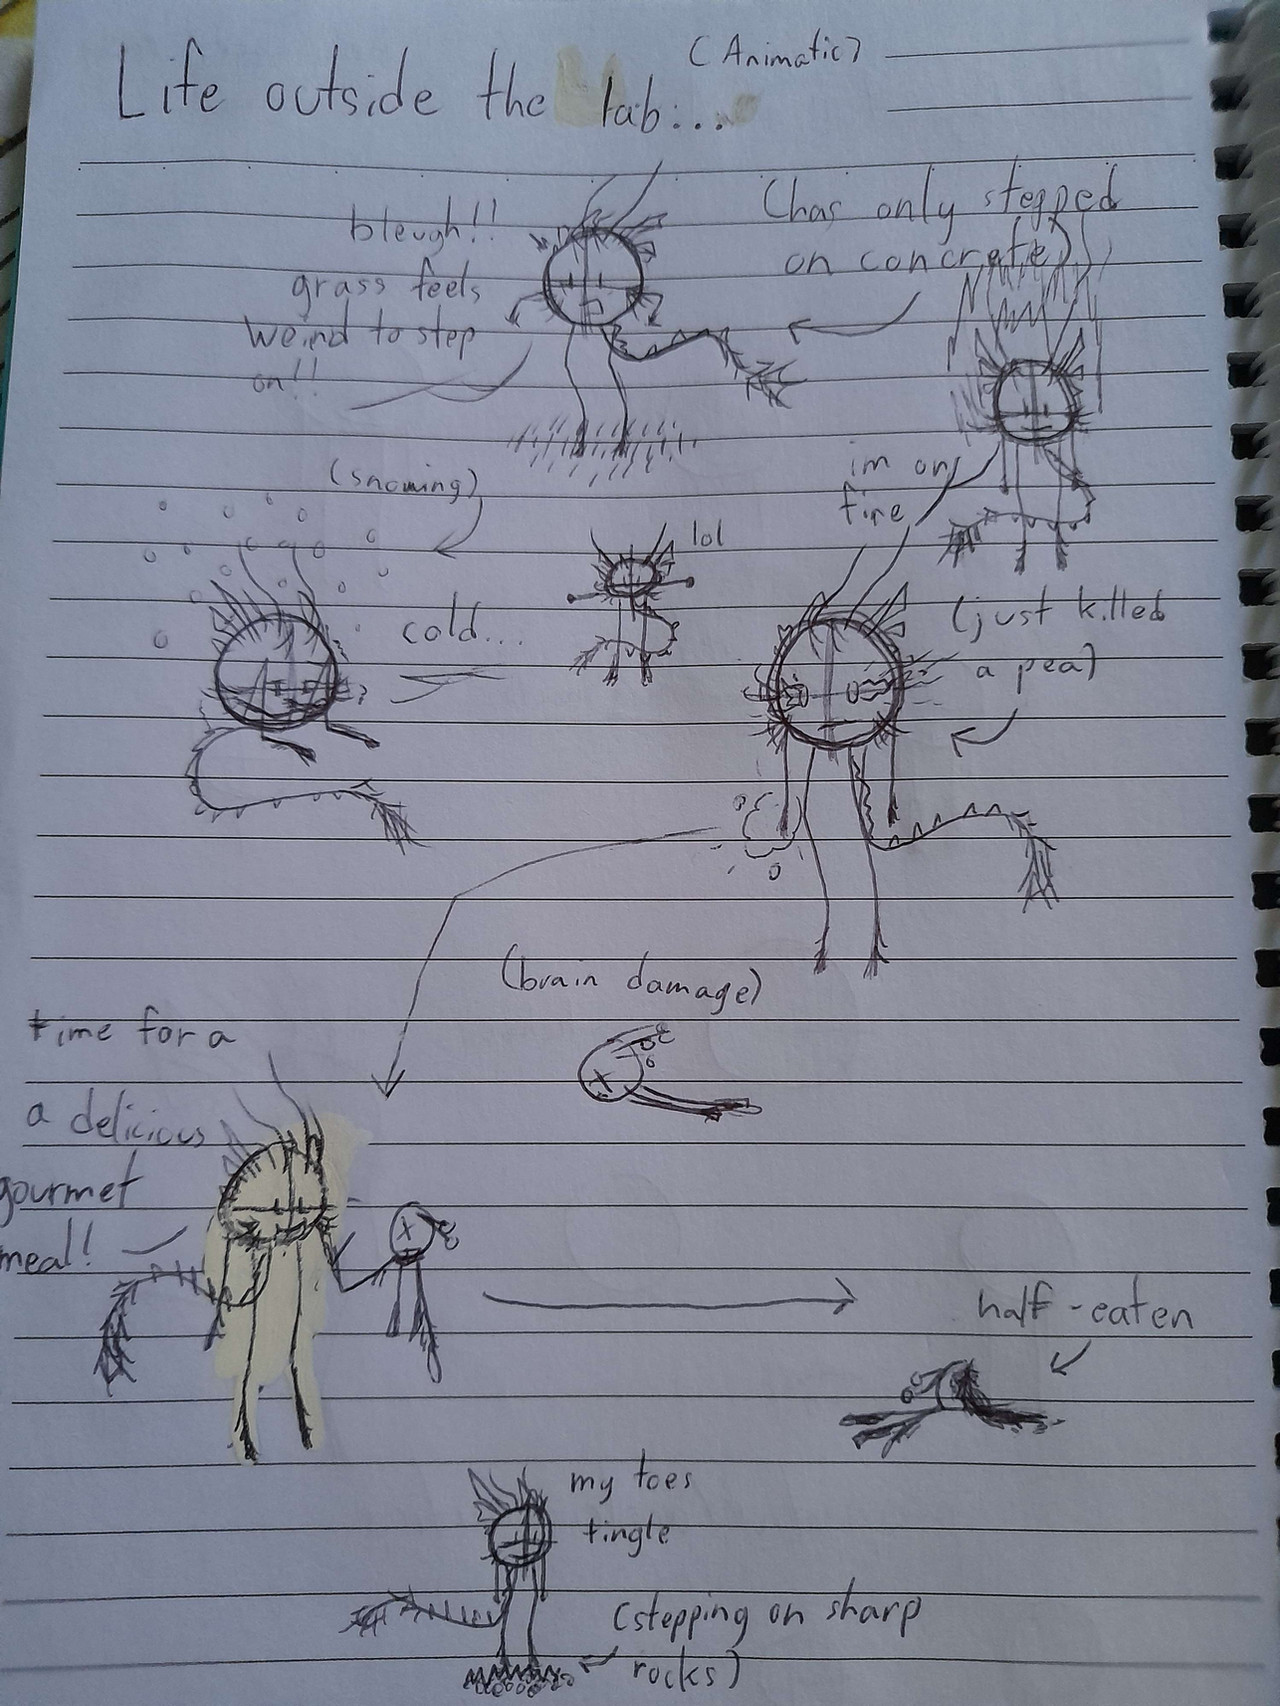 Life outside the lab:...
(Animatic)
bleugh!!
grass feels
weird to step
on!!
(has only stepped
on concrete)
im on
fire
(snowing)
cold...
lol
(just killed
a pea)
(brain damage)
time for a
a delicious
gourmet
meal!
half-eaten
my toes
tingle
(stepping on sharp
rocks)